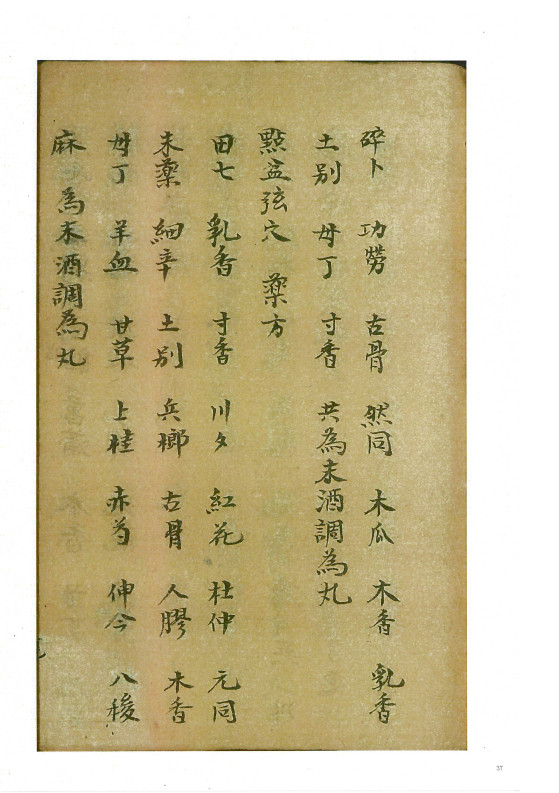 碎卜 功勞 古骨 然同 木瓜 木香 乳香
土别 母丁 寸香 共為末酒調為丸
點盆弦穴 藥方
田七 乳香 寸香 川夕 紅花 杜仲 元同
末藥 細辛 土别 兵榔 古骨 人膠 木香
母丁 羊血 甘草 上桂 赤芍 伸今 八稜
麻 為末酒調為丸
37